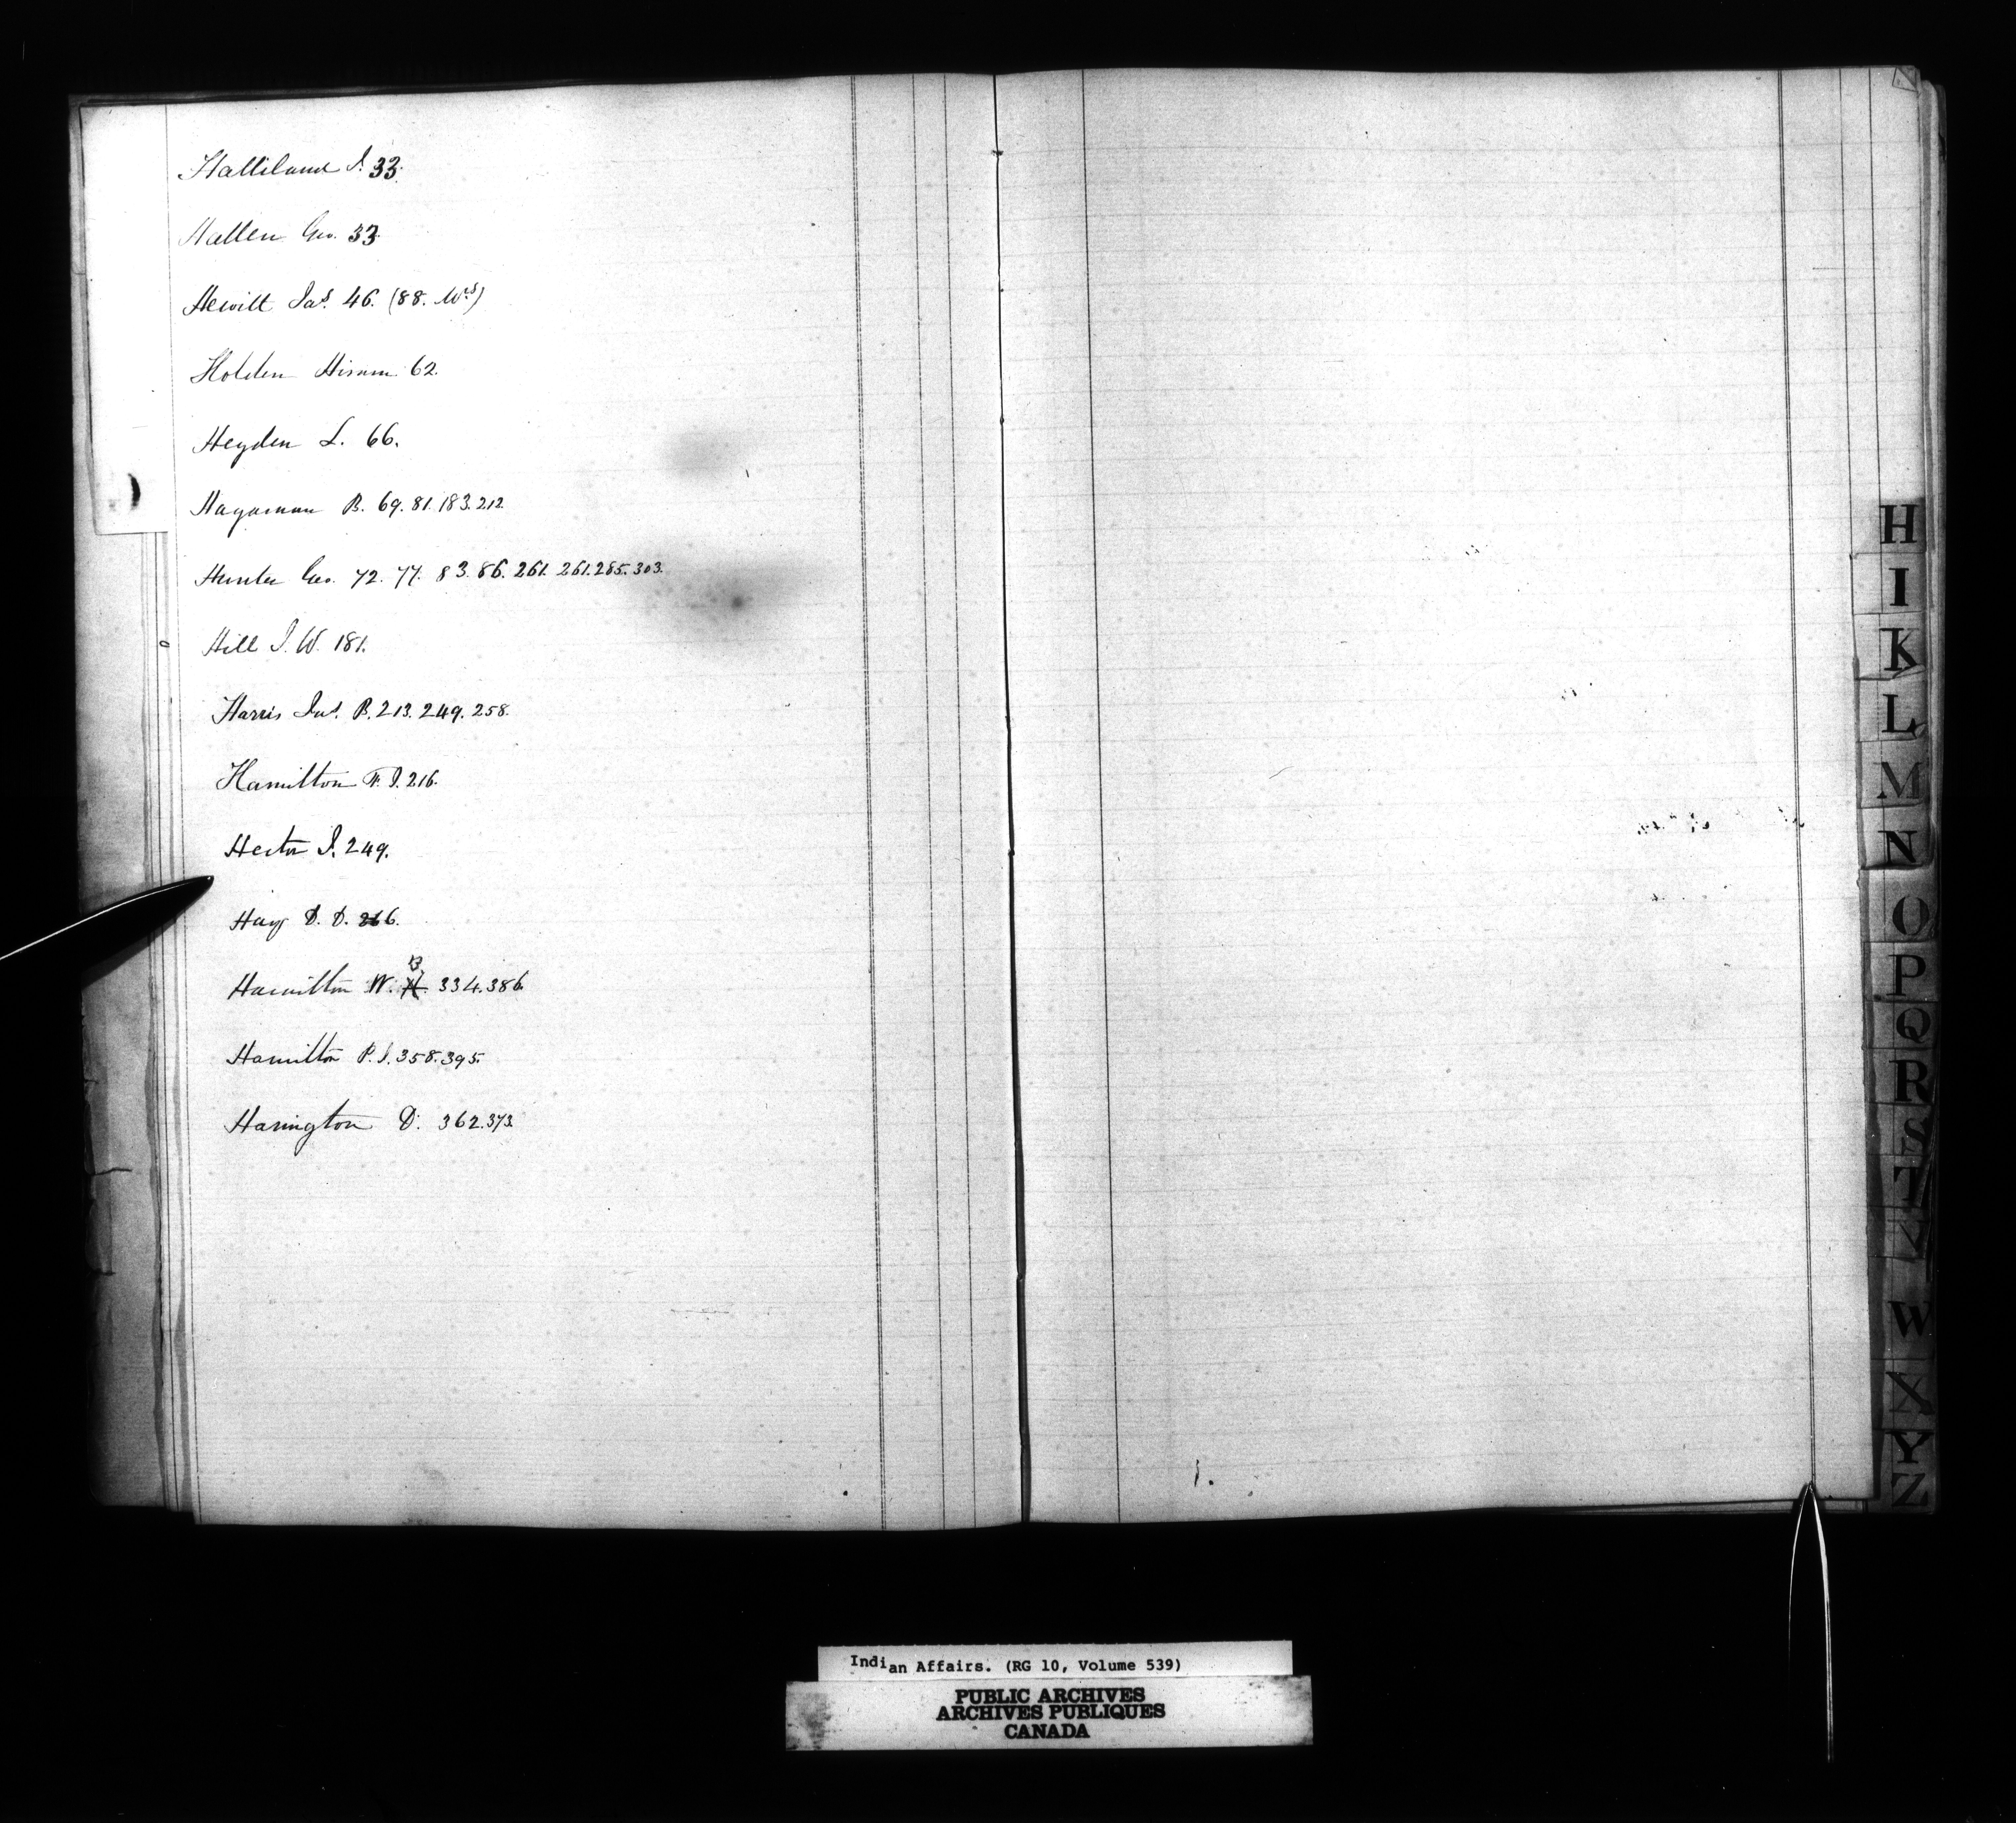 Halliland J. 33.
Hallen Geo. 33
Hewitt Jas. 46. (88. Mrs)
Holden Hiram 62.
Heyden L. 66.
Hagaman B. 69. 81. 183. 212.
Hunter Geo. 72. 77. 83. 86. 261. 261. 285. 303.
Hill J. W. 181.
Harris Jas. B. 213. 249. 258.
Hamilton F. J. 216.
Hector J. 249.
Hay D. D. 266.
Hamilton W. B. 334. 386.
Hamilton P. J. 358. 395.
Harrington D. 362. 373.
H
I
K
L
M
N
O
P
Q
R
S
T
V
W
X
Y
Z
Indian Affairs. (RG 10, Volume 539)
PUBLIC ARCHIVES
ARCHIVES PUBLIQUES
CANADA